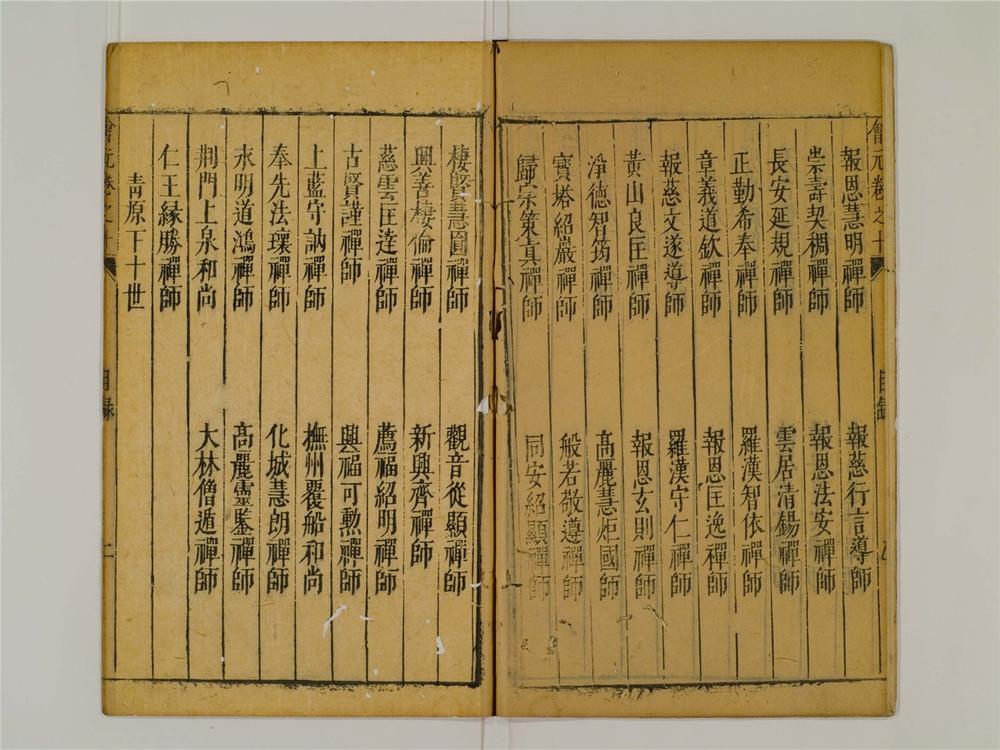 會元卷之十
目錄
報恩慧明禪師 報慈行言導師
崇壽契稠禪師 報恩法安禪師
長安延規禪師 雲居清錫禪師
正勤希奉禪師 羅漢智依禪師
章義道欽禪師 報恩匡逸禪師
報慈文遂導師 羅漢守仁禪師
黃山良匡禪師 報恩玄則禪師
淨德智筠禪師 高麗慧炬國師
寶塔紹巖禪師 般若敬遵禪師
歸宗策真禪師 同安紹顯禪師
棲賢慧圓禪師 觀音從顯禪師
興善棲倫禪師 新興齊禪師
慈雲匡達禪師 薦福紹明禪師
古賢謹禪師 興福可勳禪師
上藍守訥禪師 撫州覆船和尚
奉先法瓌禪師 化城慧朗禪師
永明道鴻禪師 高麗靈鑒禪師
荊門上泉和尚 大林僧遁禪師
仁王緣勝禪師
青原下十世
會元卷之十
目錄